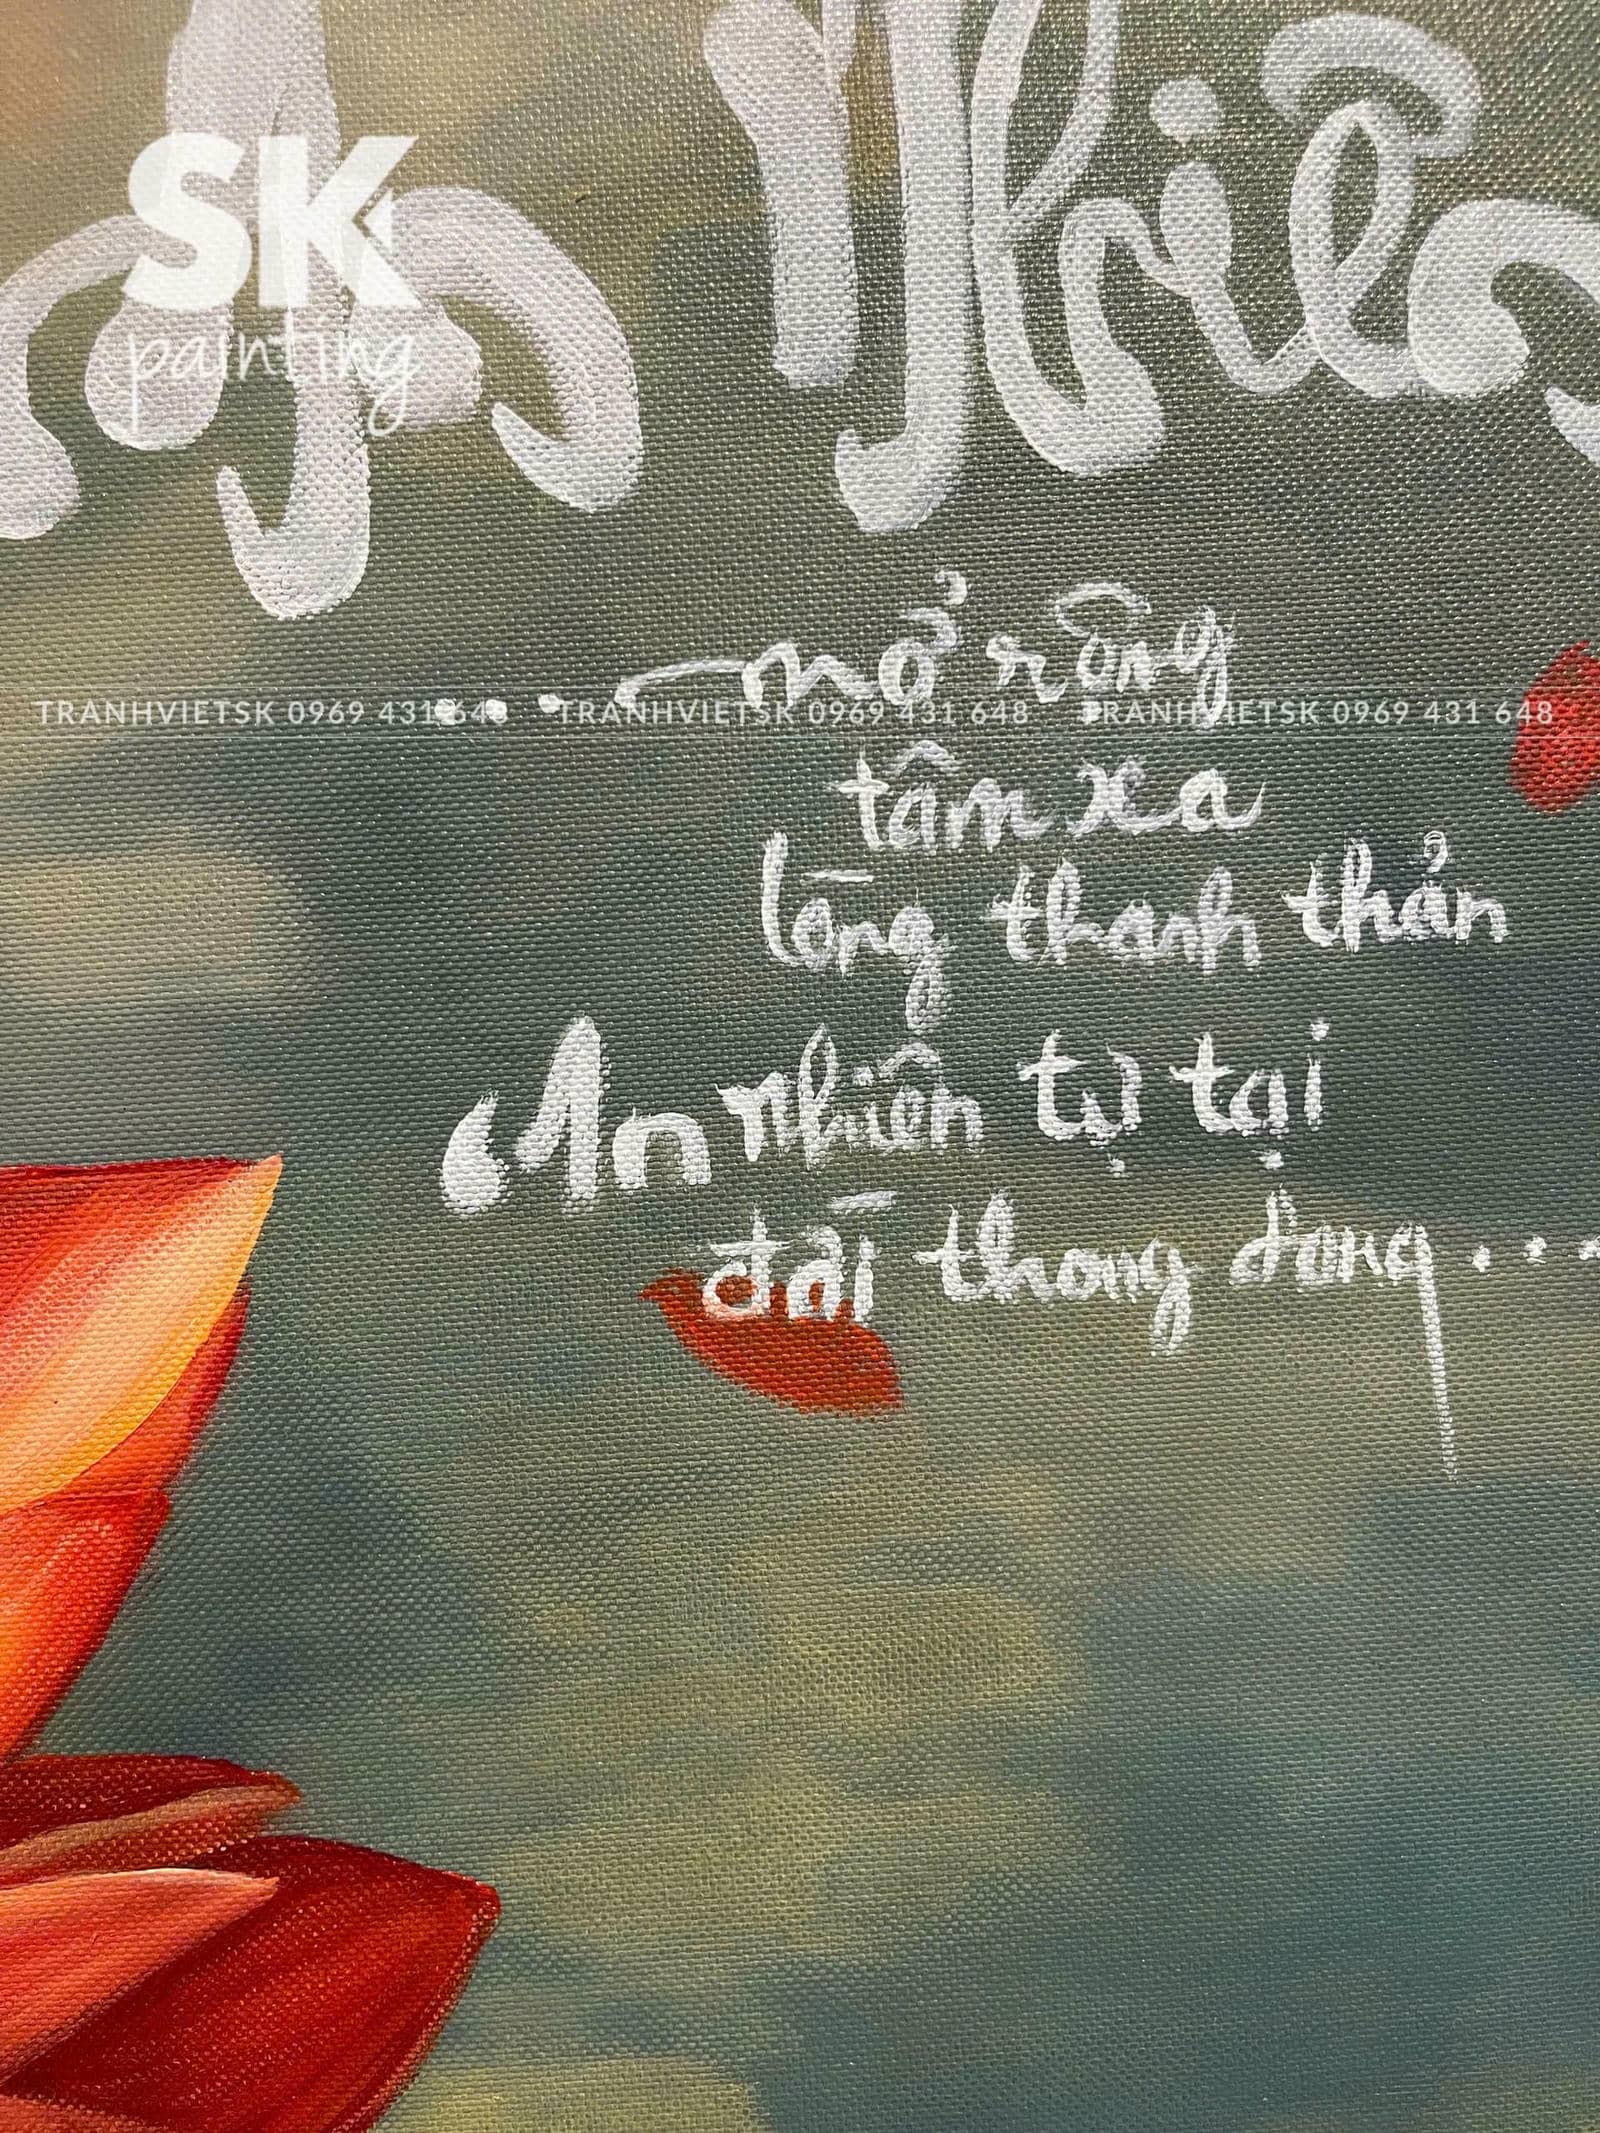 An Nhiên
SK
painting
...mở rộng
TRANHVIETSK 0969 431 648 TRANHVIETSK 0969 431 648 TRANHVIETSK 0969 431 648
tâm xa
lòng thanh thản
An nhiên tự tại
đời thong dong...